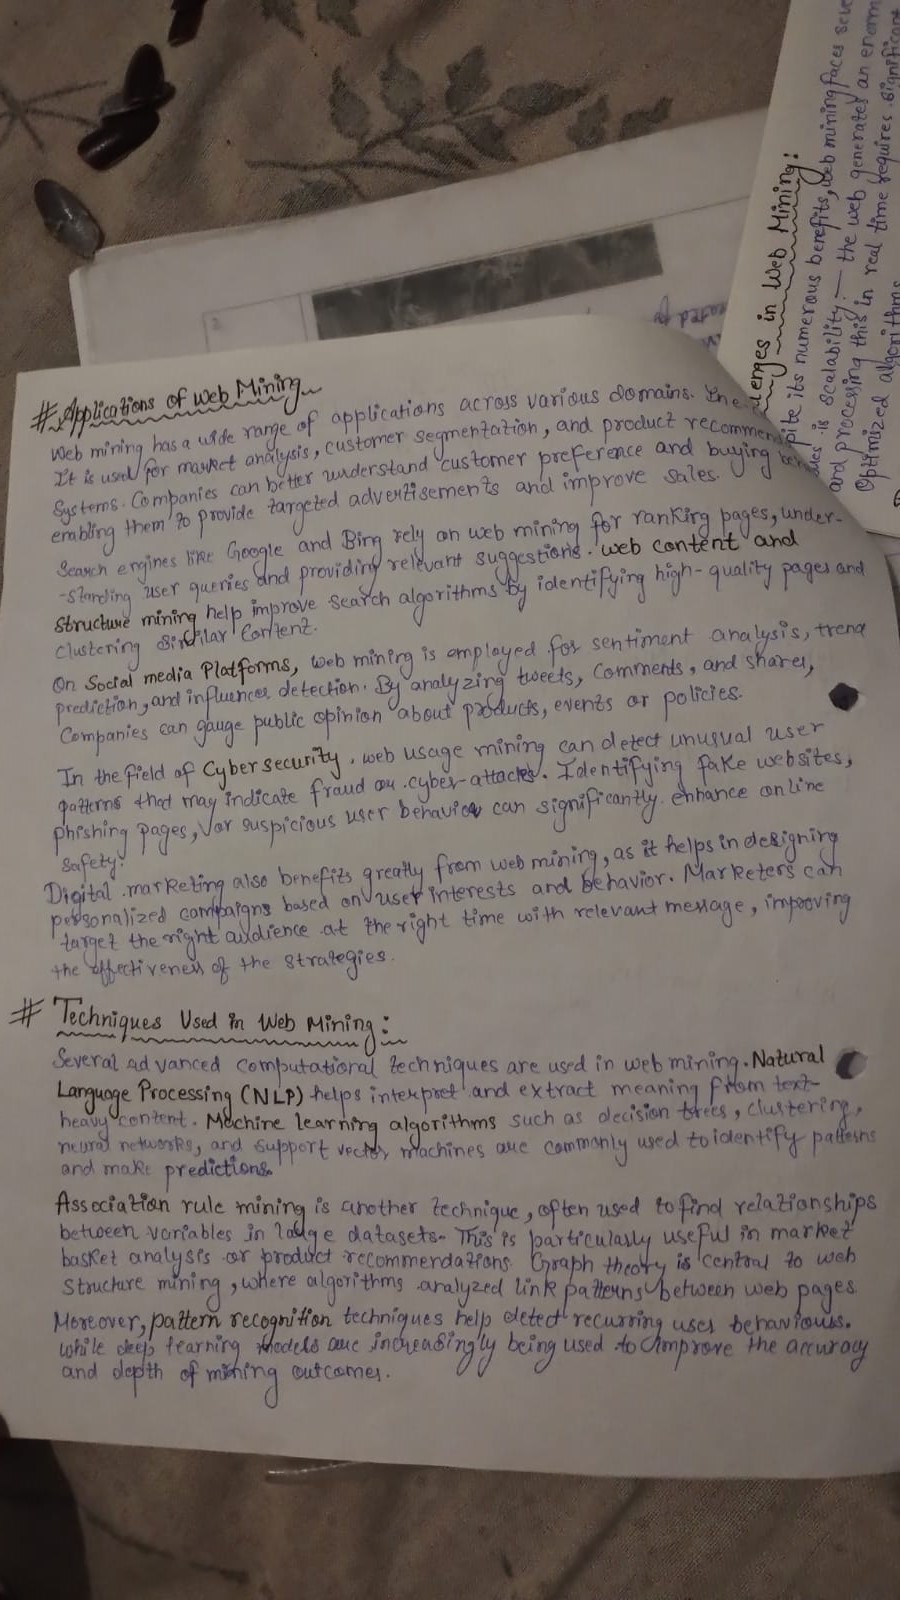 # Applications of Web Mining
Web mining has a wide range of applications across various domains.
It is used for market analysis, customer segmentation, and product recommen
Systems. Companies can better understand customer preference and buying
enabling them to provide targeted advertisements and improve sales.
Search engines like Google and Bing rely on web mining for ranking pages, under-
-standing user queries and providing relevant suggestions. web content and
Structure mining help improve search algorithms by identifying high-quality pages and
clustering similar content.
On Social media Platforms, web mining is employed for sentiment analysis, trend
prediction, and influencer detection. By analyzing tweets, comments, and shares,
Companies can gauge public opinion about products, events or policies.
In the field of Cybersecurity, web usage mining can detect unusual user
patterns that may indicate fraud or cyber-attacks. Identifying fake websites,
phishing pages, or suspicious user behavior can significantly enhance online
safety.
Digital marketing also benefits greatly from web mining, as it helps in designing
personalized campaigns based on user interests and behavior. Marketers can
target the right audience at the right time with relevant message, improving
the effectiveness of the strategies.
# Techniques Used in Web Mining:
Several advanced computational techniques are used in web mining. Natural
Language Processing (NLP) helps interpret and extract meaning from text-
heavy content. Machine learning algorithms such as decision trees, clustering,
neural networks, and support vector machines are commonly used to identify patterns
and make predictions.
Association rule mining is another technique, often used to find relationships
between variables in large datasets. This is particularly useful in market
basket analysis or product recommendations. Graph theory is central to web
Structure mining, where algorithms analyzed link patterns between web pages
Moreover, pattern recognition techniques help detect recurring user behaviours.
while deep learning models are increasingly being used to improve the accuracy
and depth of mining outcomes.
lenges in Web Mining:
pite its numerous benefits, web mining faces seve
is scalability:— the web generates an enorm
and processing this in real time requires significant
Optimized algorithms